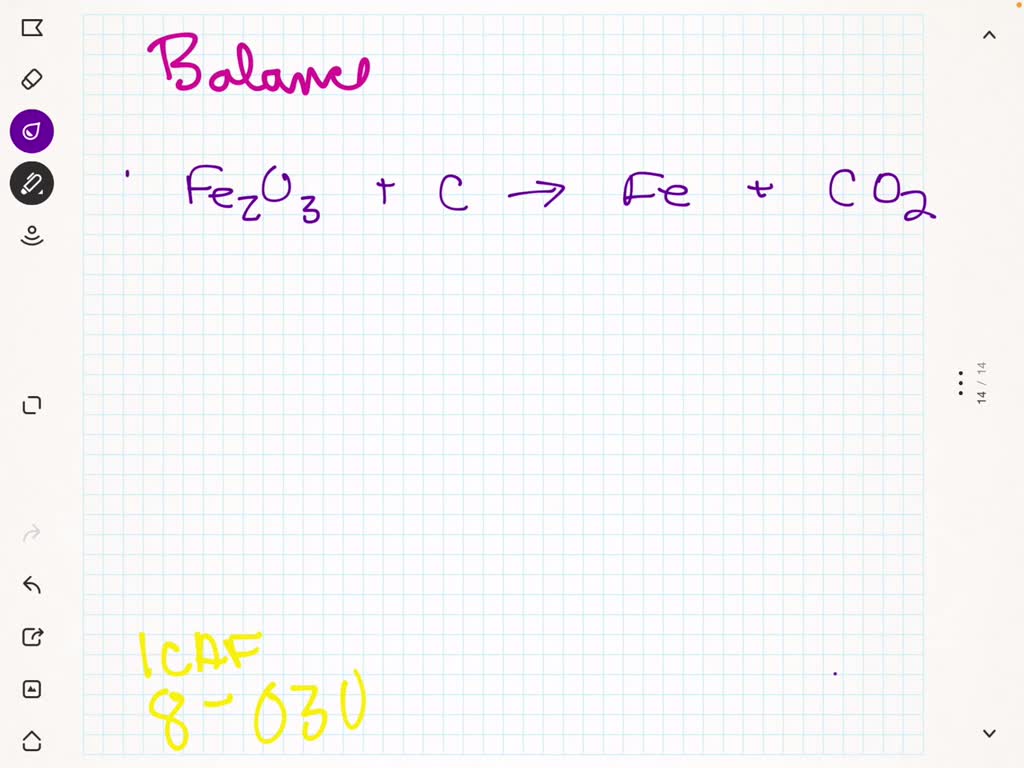 Balance
Fe₂O₃ + C → Fe + CO₂
14 / 14
ICAF
8-030